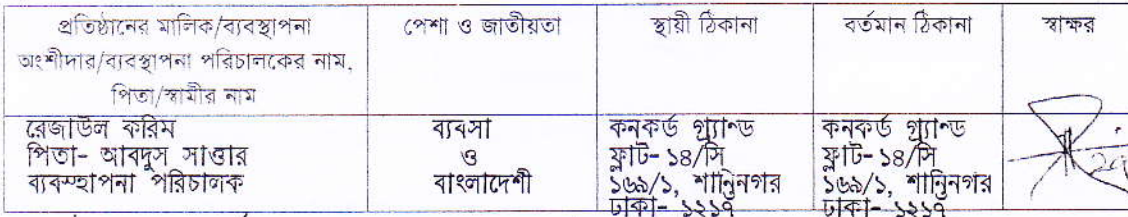 প্রতিষ্ঠানের মালিক/ব্যবস্থাপনা
অংশীদার/ব্যবস্থাপনা পরিচালকের নাম,
পিতা/স্বামীর নাম
পেশা ও জাতীয়তা
স্থায়ী ঠিকানা
বর্তমান ঠিকানা
স্বাক্ষর
রেজাউল করিম
পিতা- আবদুস সাত্তার
ব্যবস্হাপনা পরিচালক
ব্যবসা
ও
বাংলাদেশী
কনকর্ড গ্র্যান্ড
ফ্লাট- ১৪/সি
১৬৯/১, শান্তিনগর
ঢাকা- ১২১৭
কনকর্ড গ্র্যান্ড
ফ্লাট- ১৪/সি
১৬৯/১, শান্তিনগর
ঢাকা- ১২১৭